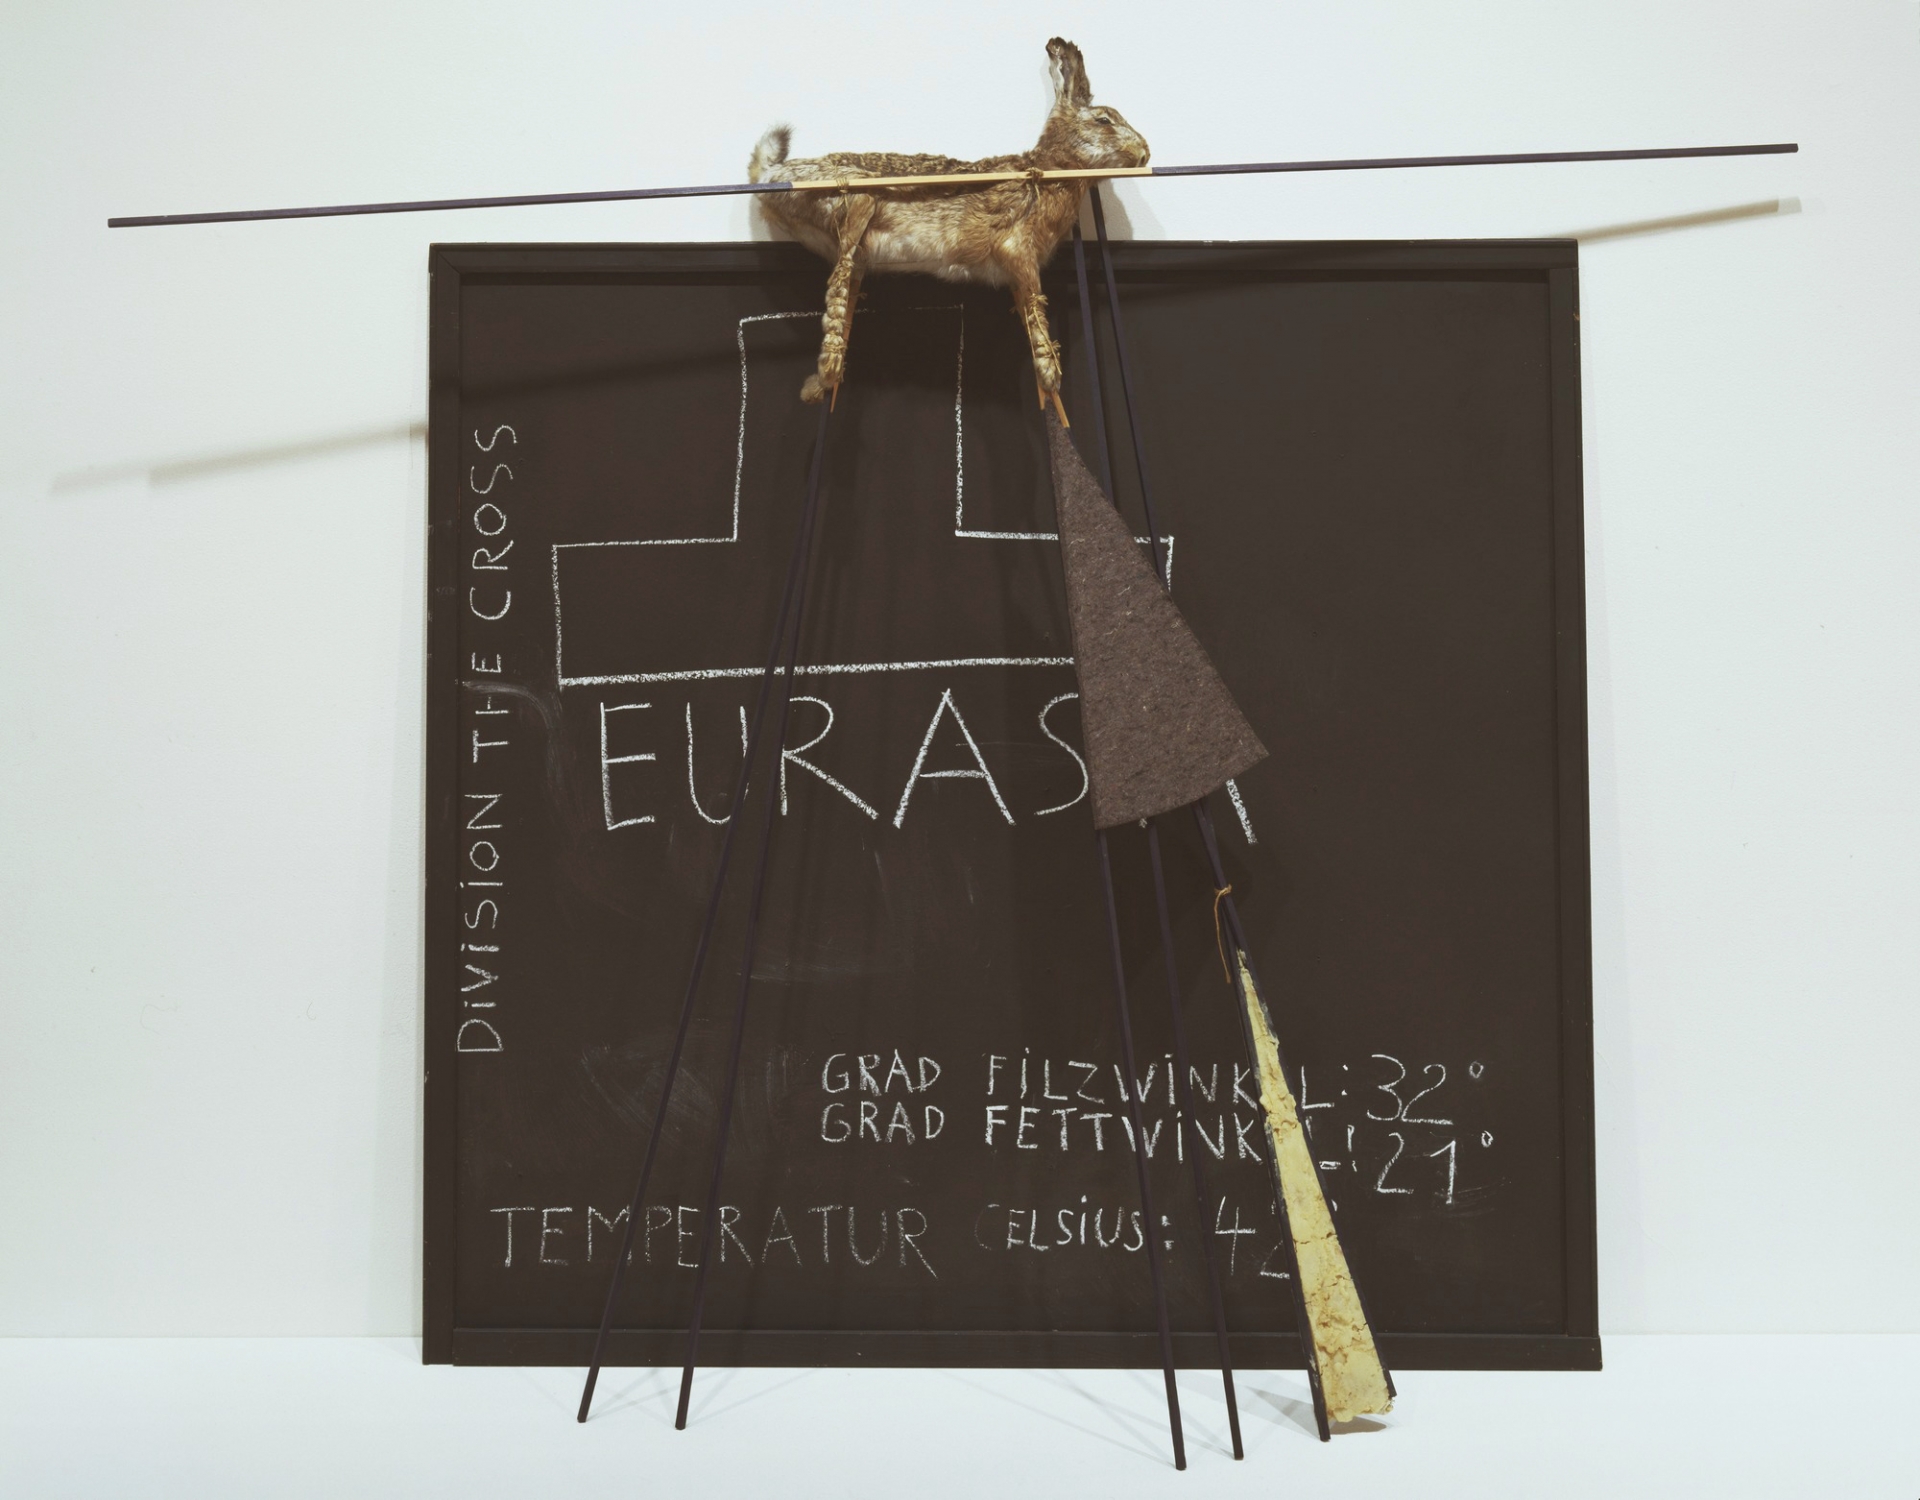 DiViSiON THE CROSS
EURAS
GRAD FiLZWiNKEL: 32°
GRAD FETTWiNKEL: 21°
TEMPERATUR CELSiUS: 42°